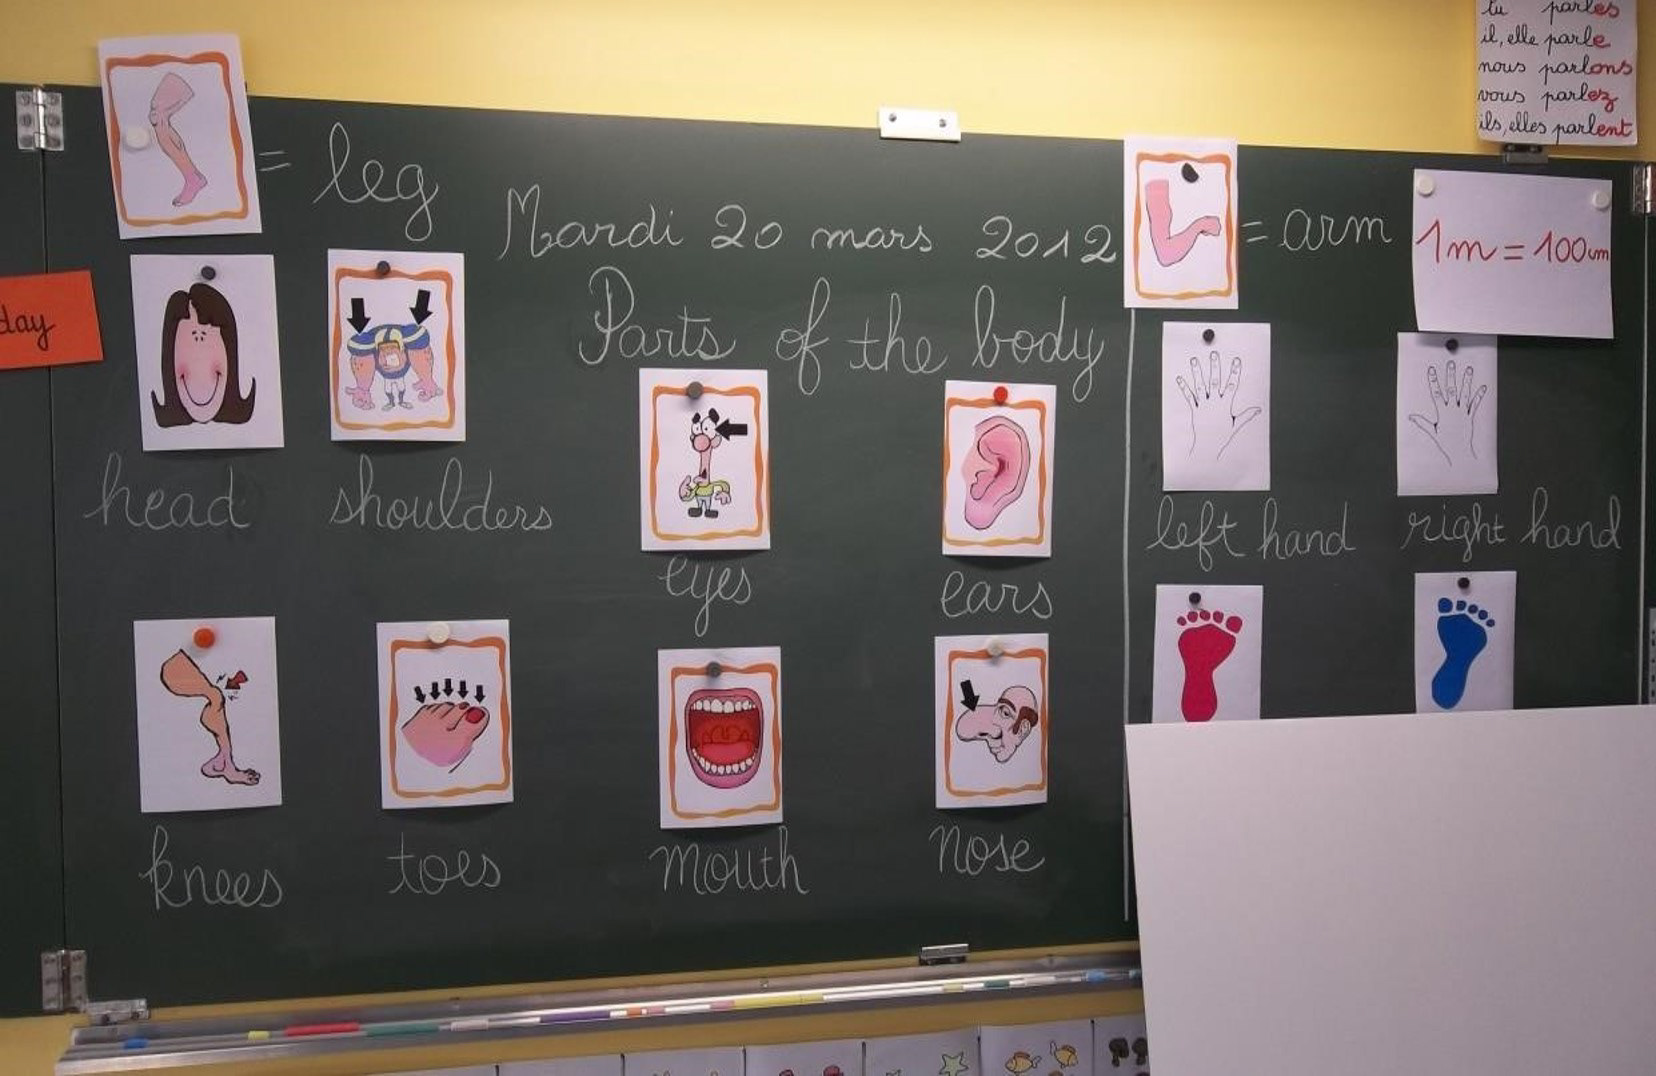 tu parles
il, elle parle
nous parlons
vous parlez
ils, elles parlent
= leg
Mardi 20 mars 2012
= arm
1m = 100cm
day
Parts of the body
head
shoulders
eyes
ears
left hand
right hand
knees
toes
mouth
nose